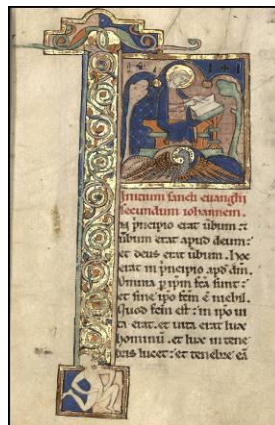 Initium sancti euangłii
secundum iohannem.
In pͥncipio erat ūbum: ⁊
ūbum erat apud deum:
et deus erat ūbum. hoc
erat in pͥncipio apđ dm̄.
Omnia p ip̄m fc̄a sunt:
et sine ip̄o fc̄m ē nichil.
Quod fc̄m est: in ip̄o ui
ta erat. et uita erat lux
hominū. et lux in tene
bris lucet: et tenebre eā